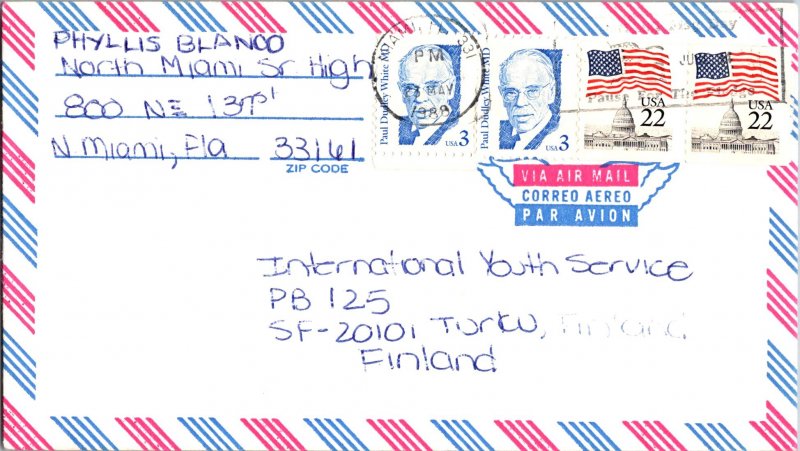 PHYLLIS BLANCO
North Miami Sr High
800 NE 137
N Miami, Fla 33161
ZIP CODE
MIAMI, FL 331
PM
27 MAY
1988
Paul Dudley White MD
USA 3
Paul Dudley White MD
USA 3
USA
22
USA
22
JU
Pause For The
VIA AIR MAIL
CORREO AEREO
PAR AVION
International Youth Service
PB 125
SF-20101 Turku, Finland
Finland